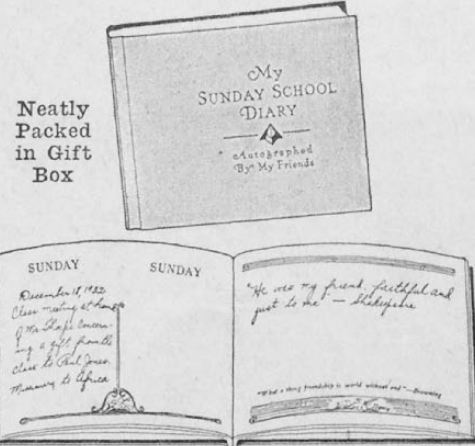 My
SUNDAY SCHOOL
DIARY
Autographed
By My Friends
Neatly
Packed
in Gift
Box
SUNDAY SUNDAY
December 18, 1922
Class meeting at home
of Mr. concern-
ing a gift from the
class to Paul Jones
Missionary to Africa
"He was my friend, faithful and
just to me" — Shakespeare
"What a thing friendship is world without end"—Browning